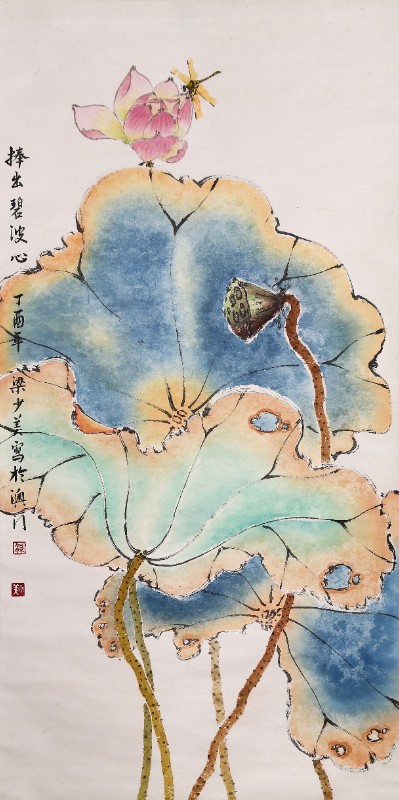 捧出碧波心
丁酉年 梁少美寫於澳门